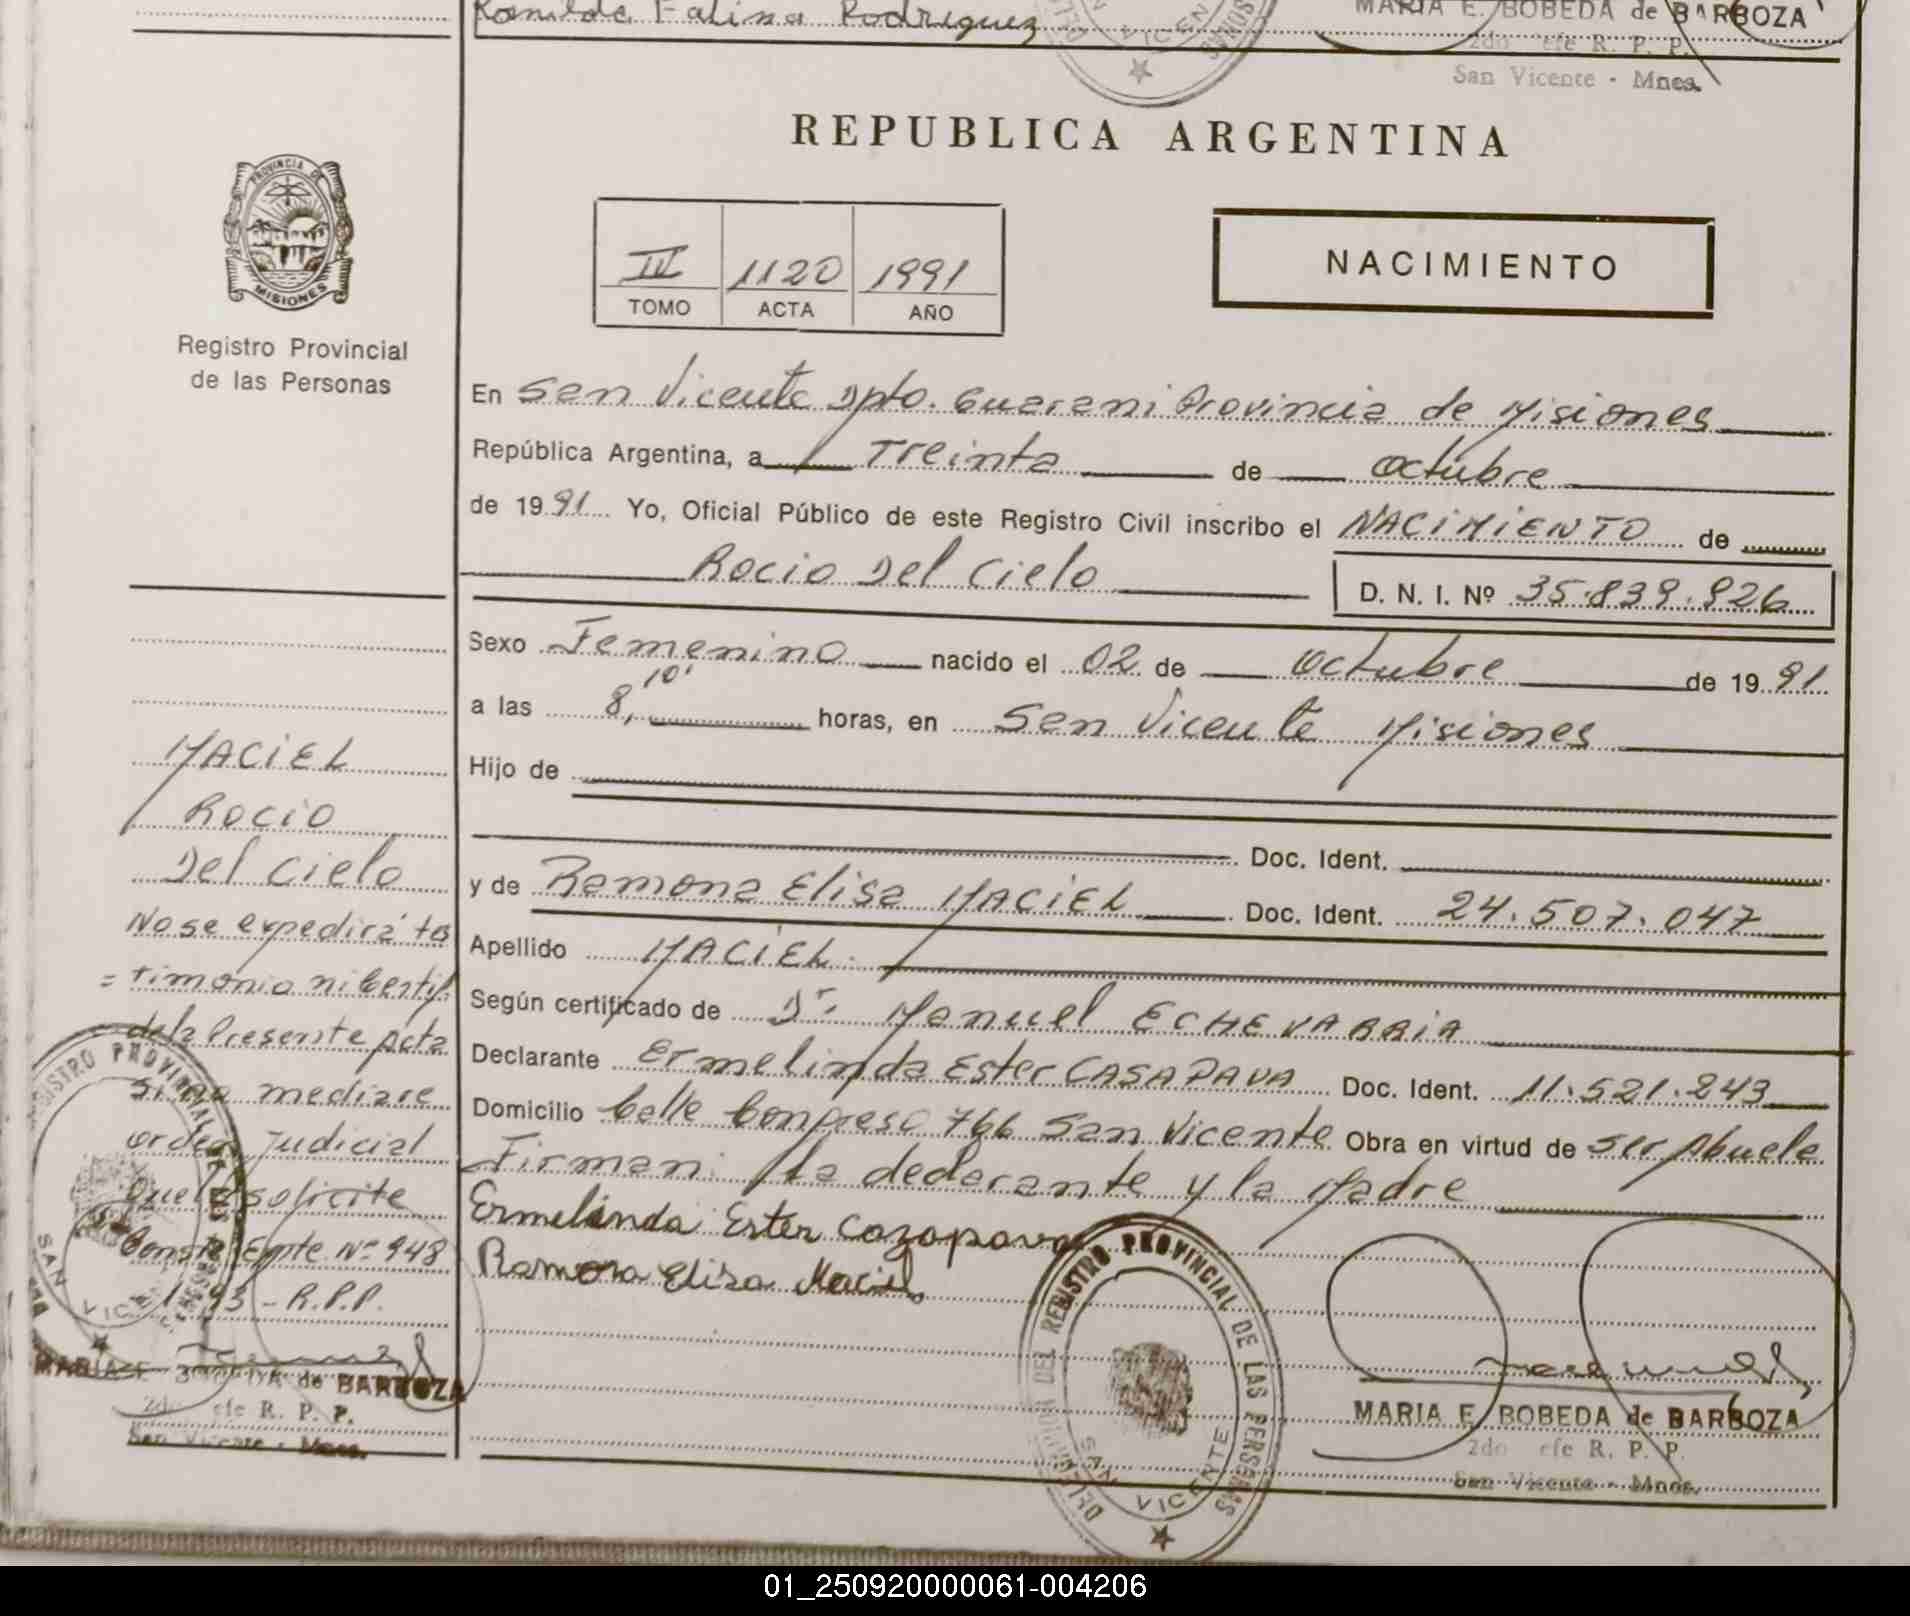 Romilda Fatima Rodriguez
MARIA E. BOBEDA de BARBOZA
2do efe R. P. P.
San Vicente - Mnes.
REPUBLICA ARGENTINA
PROVINCIA DE
MISIONES
Registro Provincial
de las Personas
IV 1120 1991
TOMO ACTA AÑO
NACIMIENTO
En San Vicente Dpto. Guarani Provincia de Misiones
República Argentina, a Treinta de octubre
de 1991 Yo, Oficial Público de este Registro Civil inscribo el NACIMIENTO de
Rocio Del Cielo D. N. I. Nº 35.839.926
Sexo Femenino nacido el 02 de octubre de 1991
a las 8,10' horas, en San Vicente Misiones
Hijo de
Doc. Ident.
y de Ramona Elisa MACIEL Doc. Ident. 24.507.047
Apellido MACIEL.
Según certificado de Dr. Manuel ECHEVARRIA
Declarante Ermelinda Ester CASAPAVA Doc. Ident. 11.521.243
Domicilio Calle Congreso 766 San Vicente Obra en virtud de ser Abuela
Firman: la declarante y la Madre
Ermelinda Ester Cazapava
Ramona Elisa Maciel
MARIA E. BOBEDA de BARBOZA
2do efe R. P. P.
San Vicente - Mnes.
DELEGACION DEL REGISTRO PROVINCIAL DE LAS PERSONAS
SAN VICENTE
MACIEL
Rocio
Del Cielo
No se expedirá tes
= timonio ni Certif.
de la Presente Acta
si no mediare
orden Judicial
que lo solicite
Const. Expte. Nº 948
93 - R.P.P.
MARIA E. BOBEDA de BARBOZA
2do efe R. P. P.
San Vicente - Mnes.
01_250920000061-004206